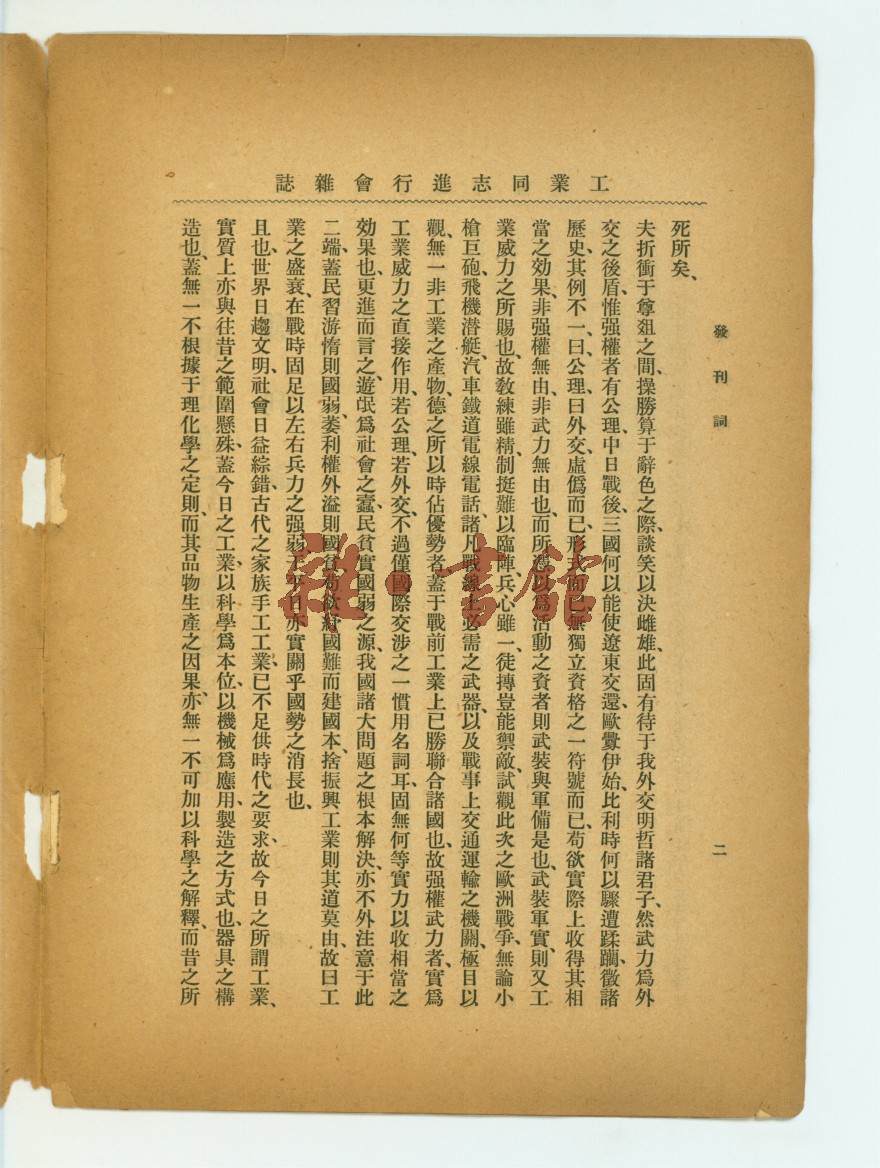 工業同志進行會雜誌
發刊詞
二
死所矣、
夫折衝于尊爼之間、操勝算于辭色之際、談笑以決雌雄、此固有待于我外交明哲諸君子、然武力爲外
交之後盾、惟强權者有公理、中日戰後、三國何以能使遼東交還、歐釁伊始、比利時何以驟遭蹂躪、徵諸
歷史、其例不一、曰公理、曰外交、虛僞而已、形式而已、無獨立資格之一符號而已、苟欲實際上收得其相
當之効果、非强權無由、非武力無由也、而所憑以爲活動之資者則武裝與軍備是也、武裝軍實、則又工
業威力之所賜也、故敎練雖精、制挺難以臨陣、兵心雖一、徒摶豈能禦敵、試觀此次之歐洲戰爭、無論小
槍巨砲、飛機潛艇、汽車鐵道電線電話、諸凡戰線上必需之武器、以及戰事上交通運輸之機關、極目以
觀、無一非工業之產物、德之所以時佔優勢者、蓋于戰前工業上已勝聯合諸國也、故强權武力者、實爲
工業威力之直接作用、若公理、若外交、不過僅國際交涉之一慣用名詞耳、固無何等實力以收相當之
効果也、更進而言之、遊氓爲社會之蠹、民貧實國弱之源、我國諸大問題之根本解決、亦不外注意于此
二端、蓋民習游惰則國弱、萎利權外溢則國貧、苟欲紓國難而建國本、捨振興工業則其道莫由、故曰工
業之盛衰、在戰時固足以左右兵力之强弱、于平日亦實關乎國勢之消長也、
且也、世界日趨文明、社會日益綜錯、古代之家族手工工業、已不足供時代之要求、故今日之所謂工業、
實質上亦與往昔之範圍懸殊、蓋今日之工業、以科學爲本位、以機械爲應用、製造之方式也、器具之構
造也、蓋無一不根據于理化學之定則、而其品物生產之因果、亦無一不可加以科學之解釋、而昔之所
雜·書館